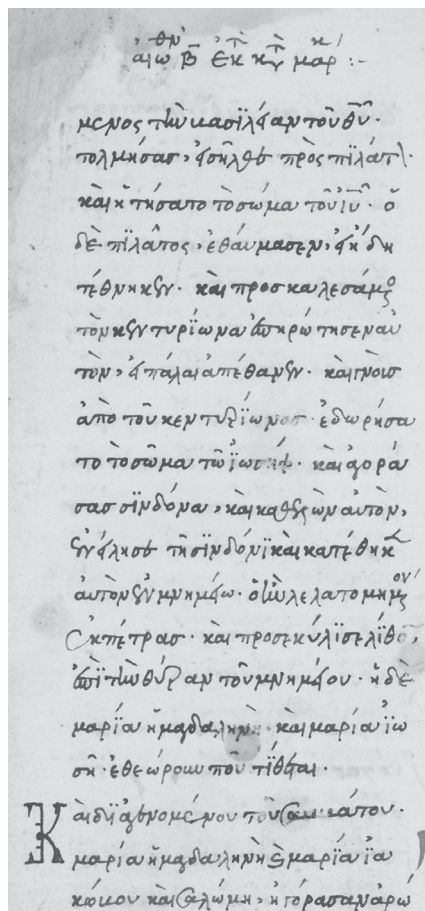 μενος τὴν βασιλείαν τοῦ θῦ·
τολμήσας, εἰσῆλθε πρὸς πιλάτ·
καὶ ἠτήσατο τὸ σῶμα τοῦ ἰῦ· ὁ
δὲ πιλᾶτος, ἐθαύμασεν, εἰ ἤδη
τέθνηκεν· καὶ προσκαλεσάμος
τὸν κεντυρίωνα ἐπηρώτησεν αὐ
τὸν, εἰ πάλαι ἀπέθανεν· καὶ γνοὺσ
ἀπὸ τοῦ κεντυρίωνοσ· ἐδωρήσα
το τὸ σῶμα τῶ ἰωσήφ· καὶ ἀγορά
σασ σινδόνα, καὶ καθελὼν αὐτὸν,
ἐνείλησε τῆ σινδόνι καὶ κατέθηκεν
αὐτὸν ἐν μνημείω· ὃ ἦν λελατομημένον
ἐκ πέτρασ· καὶ προσεκύλισε λίθον,
ἐπὶ τὴν θύραν τοῦ μνημείου· ἡ δὲ
μαρία ἡ μαγδαληνὴ· καὶ μαρία ἰω
σῆ· ἐθεώρουν ποῦ τίθεται·
Καὶ διαγενομένου τοῦ σαββάτου·
μαρία ἡ μαγδαληνὴ ϗ μαρία ἰα
κώβου καὶ σαλώμη, ἠγόρασαν ἀρώ